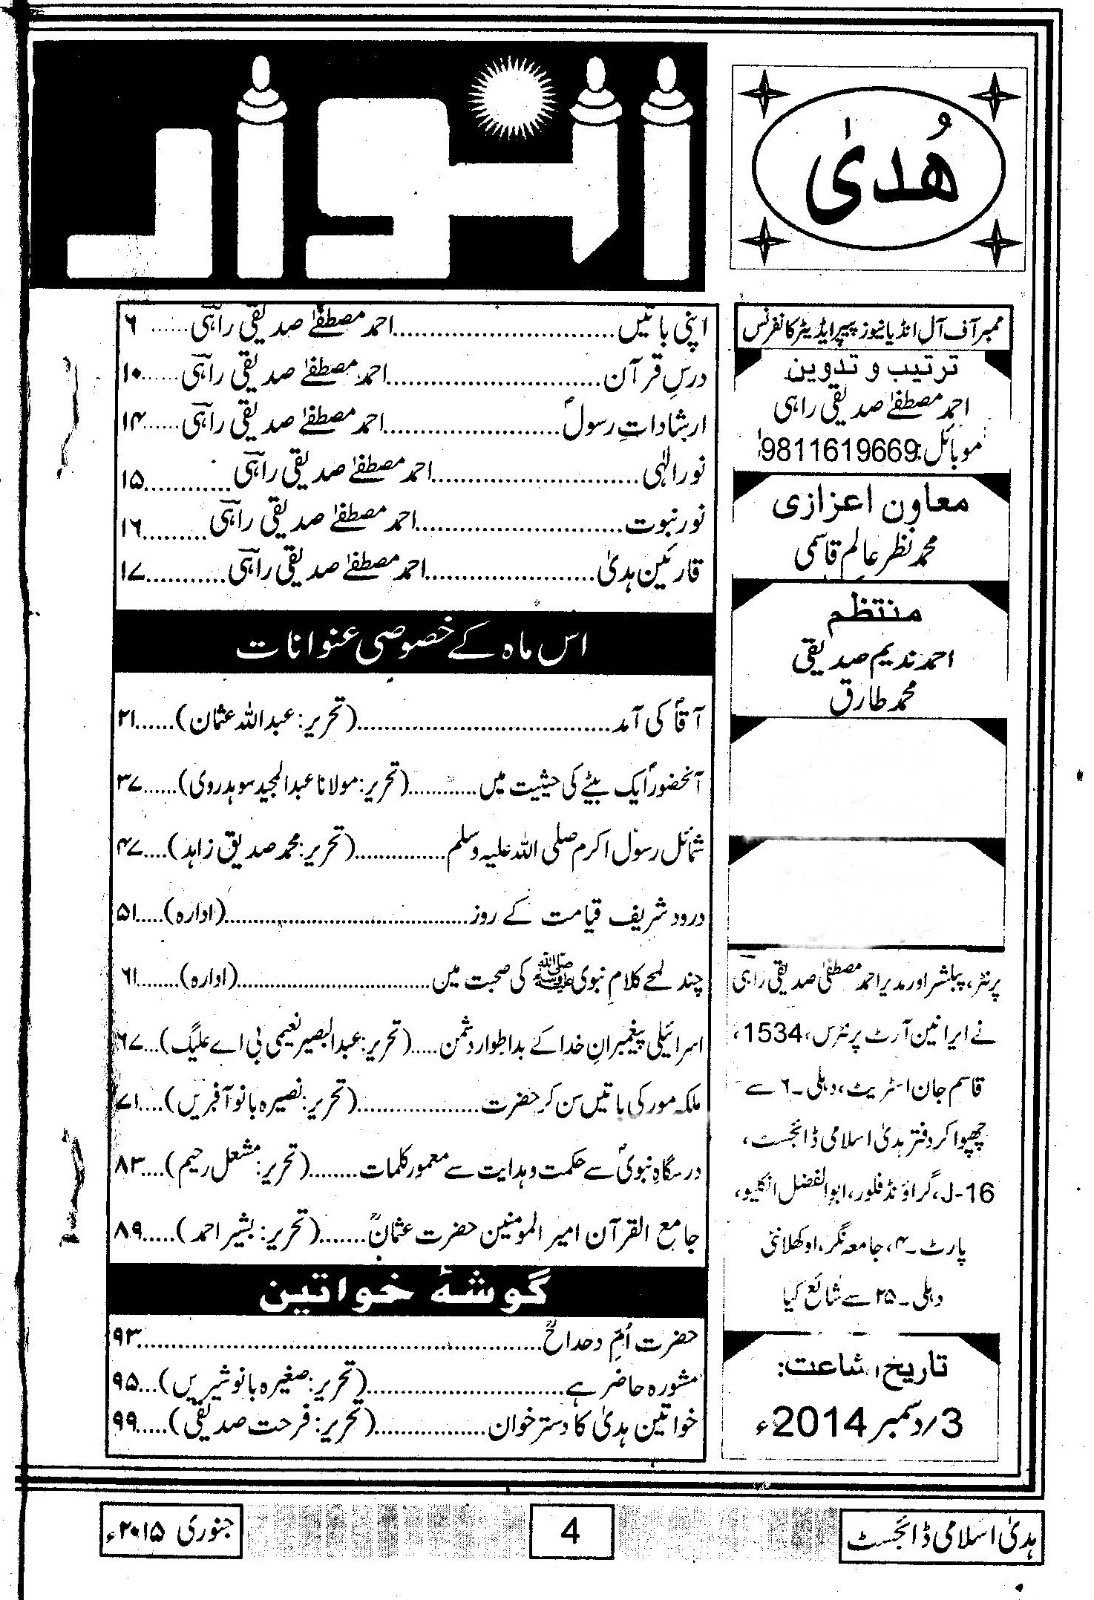 ھُدیٰ
انوار
ممبر آف آل انڈیا نیوز پیپر ایڈیٹر کانفرنس
ترتیب و تدوین
احمد مصطفےٰ صدیقی راہی
موبائل: 9811619669
معاون اعزازی
محمد نظر عالم قاسمی
منتظم
احمد ندیم صدیقی
محمد طارق
پرنٹر، پبلشر اور مدیر احمد مصطفیٰ صدیقی راہی
نے ایرانین آرٹ پرنٹرس، 1534،
قاسم جان اسٹریٹ، دہلی۔۶ سے
چھپوا کر دفتر ہدیٰ اسلامی ڈائجسٹ،
J-16، گراؤنڈ فلور، ابوالفضل انکلیو،
پارٹ ۔۴، جامعہ نگر، اوکھلا نئی
دہلی۔۲۵ سے شائع کیا
تاریخ اشاعت:
3/دسمبر 2014ء
اپنی باتیں............احمد مصطفےٰ صدیقی راہی......۶
درس قرآن............احمد مصطفےٰ صدیقی راہی......۱۰
ارشادات رسولؐ............احمد مصطفےٰ صدیقی راہی......۱۴
نور الٰہی............احمد مصطفےٰ صدیقی راہی............۱۵
نور نبوت............احمد مصطفےٰ صدیقی راہی.........۱۶
قارئین ہدیٰ............احمد مصطفےٰ صدیقی راہی............۱۷
اس ماہ کے خصوصی عنوانات
آقاؐ کی آمد............(تحریر: عبد اللہ عثمان)......۲۱
آنحضورؐ ایک بیٹے کی حیثیت میں............(تحریر: مولانا عبدالمجید سوہدروی)......۳۷
شمائل رسول اکرم صلی اللہ علیہ وسلم............(تحریر: محمد صدیق زاہد)....۴۷
درود شریف قیامت کے روز............(ادارہ)....۵۱
چند لمحے کلام نبوی ﷺ کی صحبت میں............(ادارہ).....۶۱
اسرائیلی پیغمبران خدا کے بداطوار دشمن.....(تحریر: عبدالبصیر نعیمی بی اے علیگ)...۶۷
ملکہ مور کی باتیں سن کر حضرت............(تحریر: نصیرہ بانو آفریں)....۷۱
درسگاہ نبویؐ سے حکمت و ہدایت سے معمور کلمات........(تحریر: مشعل رحیم)....۸۳
جامع القرآن امیر المومنین حضرت عثمانؓ.......(تحریر: بشیر احمد).....۸۹
گوشۂ خواتین
حضرت اُمّ دحداحؓ............۹۳
مشورہ حاضر ہے............(تحریر: صغیرہ بانو شیریں)...۹۵
خواتین ہدیٰ کا دسترخوان............(تحریر: فرحت صدیقی).....۹۹
ہدیٰ اسلامی ڈائجسٹ
4
جنوری ۲۰۱۵ء